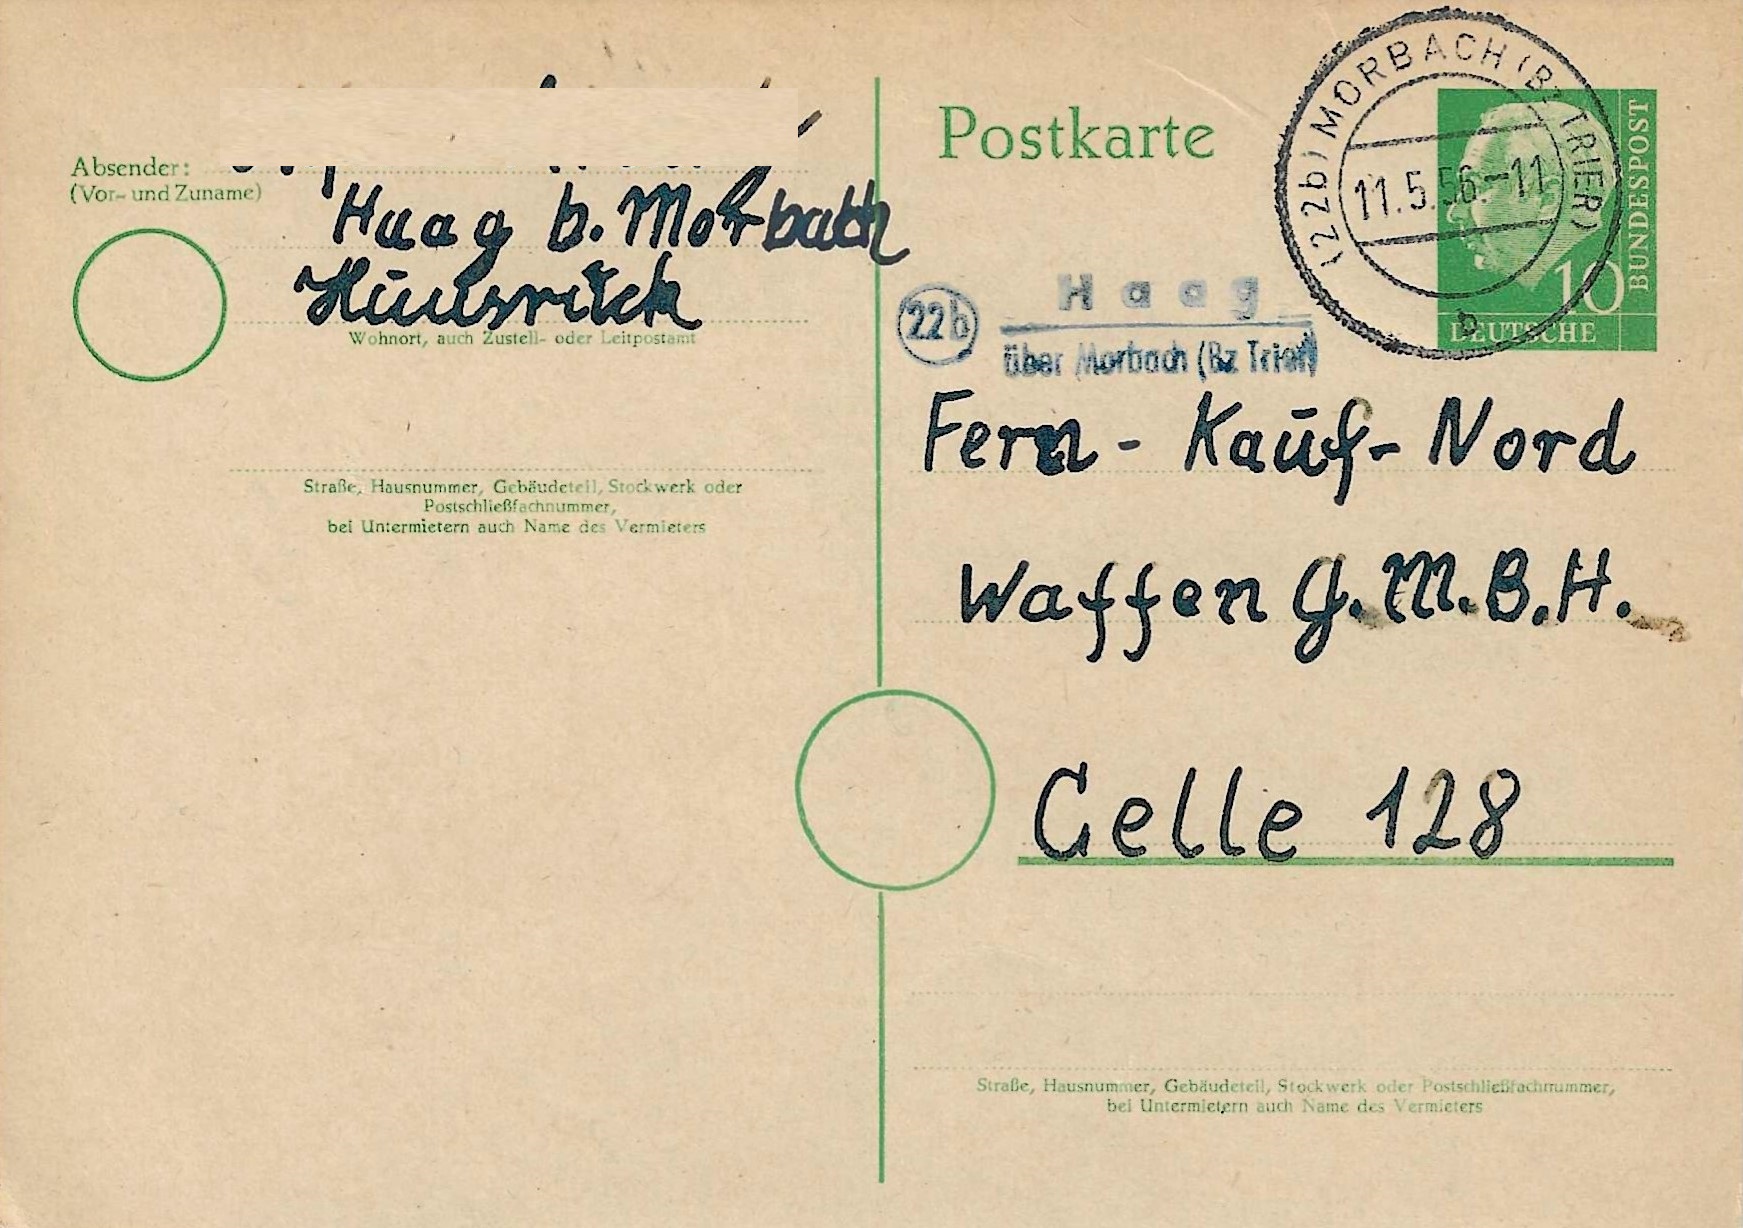 Absender:
(Vor- und Zuname)
Haag b. Morbach
Hunsrück
Wohnort, auch Zustell- oder Leitpostamt
Straße, Hausnummer, Gebäudeteil, Stockwerk oder
Postschließfachnummer,
bei Untermietern auch Name des Vermieters
Postkarte
(22b) MORBACH (BZ TRIER)
11.5.56.-11
b
10
DEUTSCHE
BUNDESPOST
22b
Haag
über Morbach (Bz Trier)
Fern-Kauf-Nord
Waffen G.M.B.H.
Celle 128
Straße, Hausnummer, Gebäudeteil, Stockwerk oder Postschließfachnummer,
bei Untermietern auch Name des Vermieters